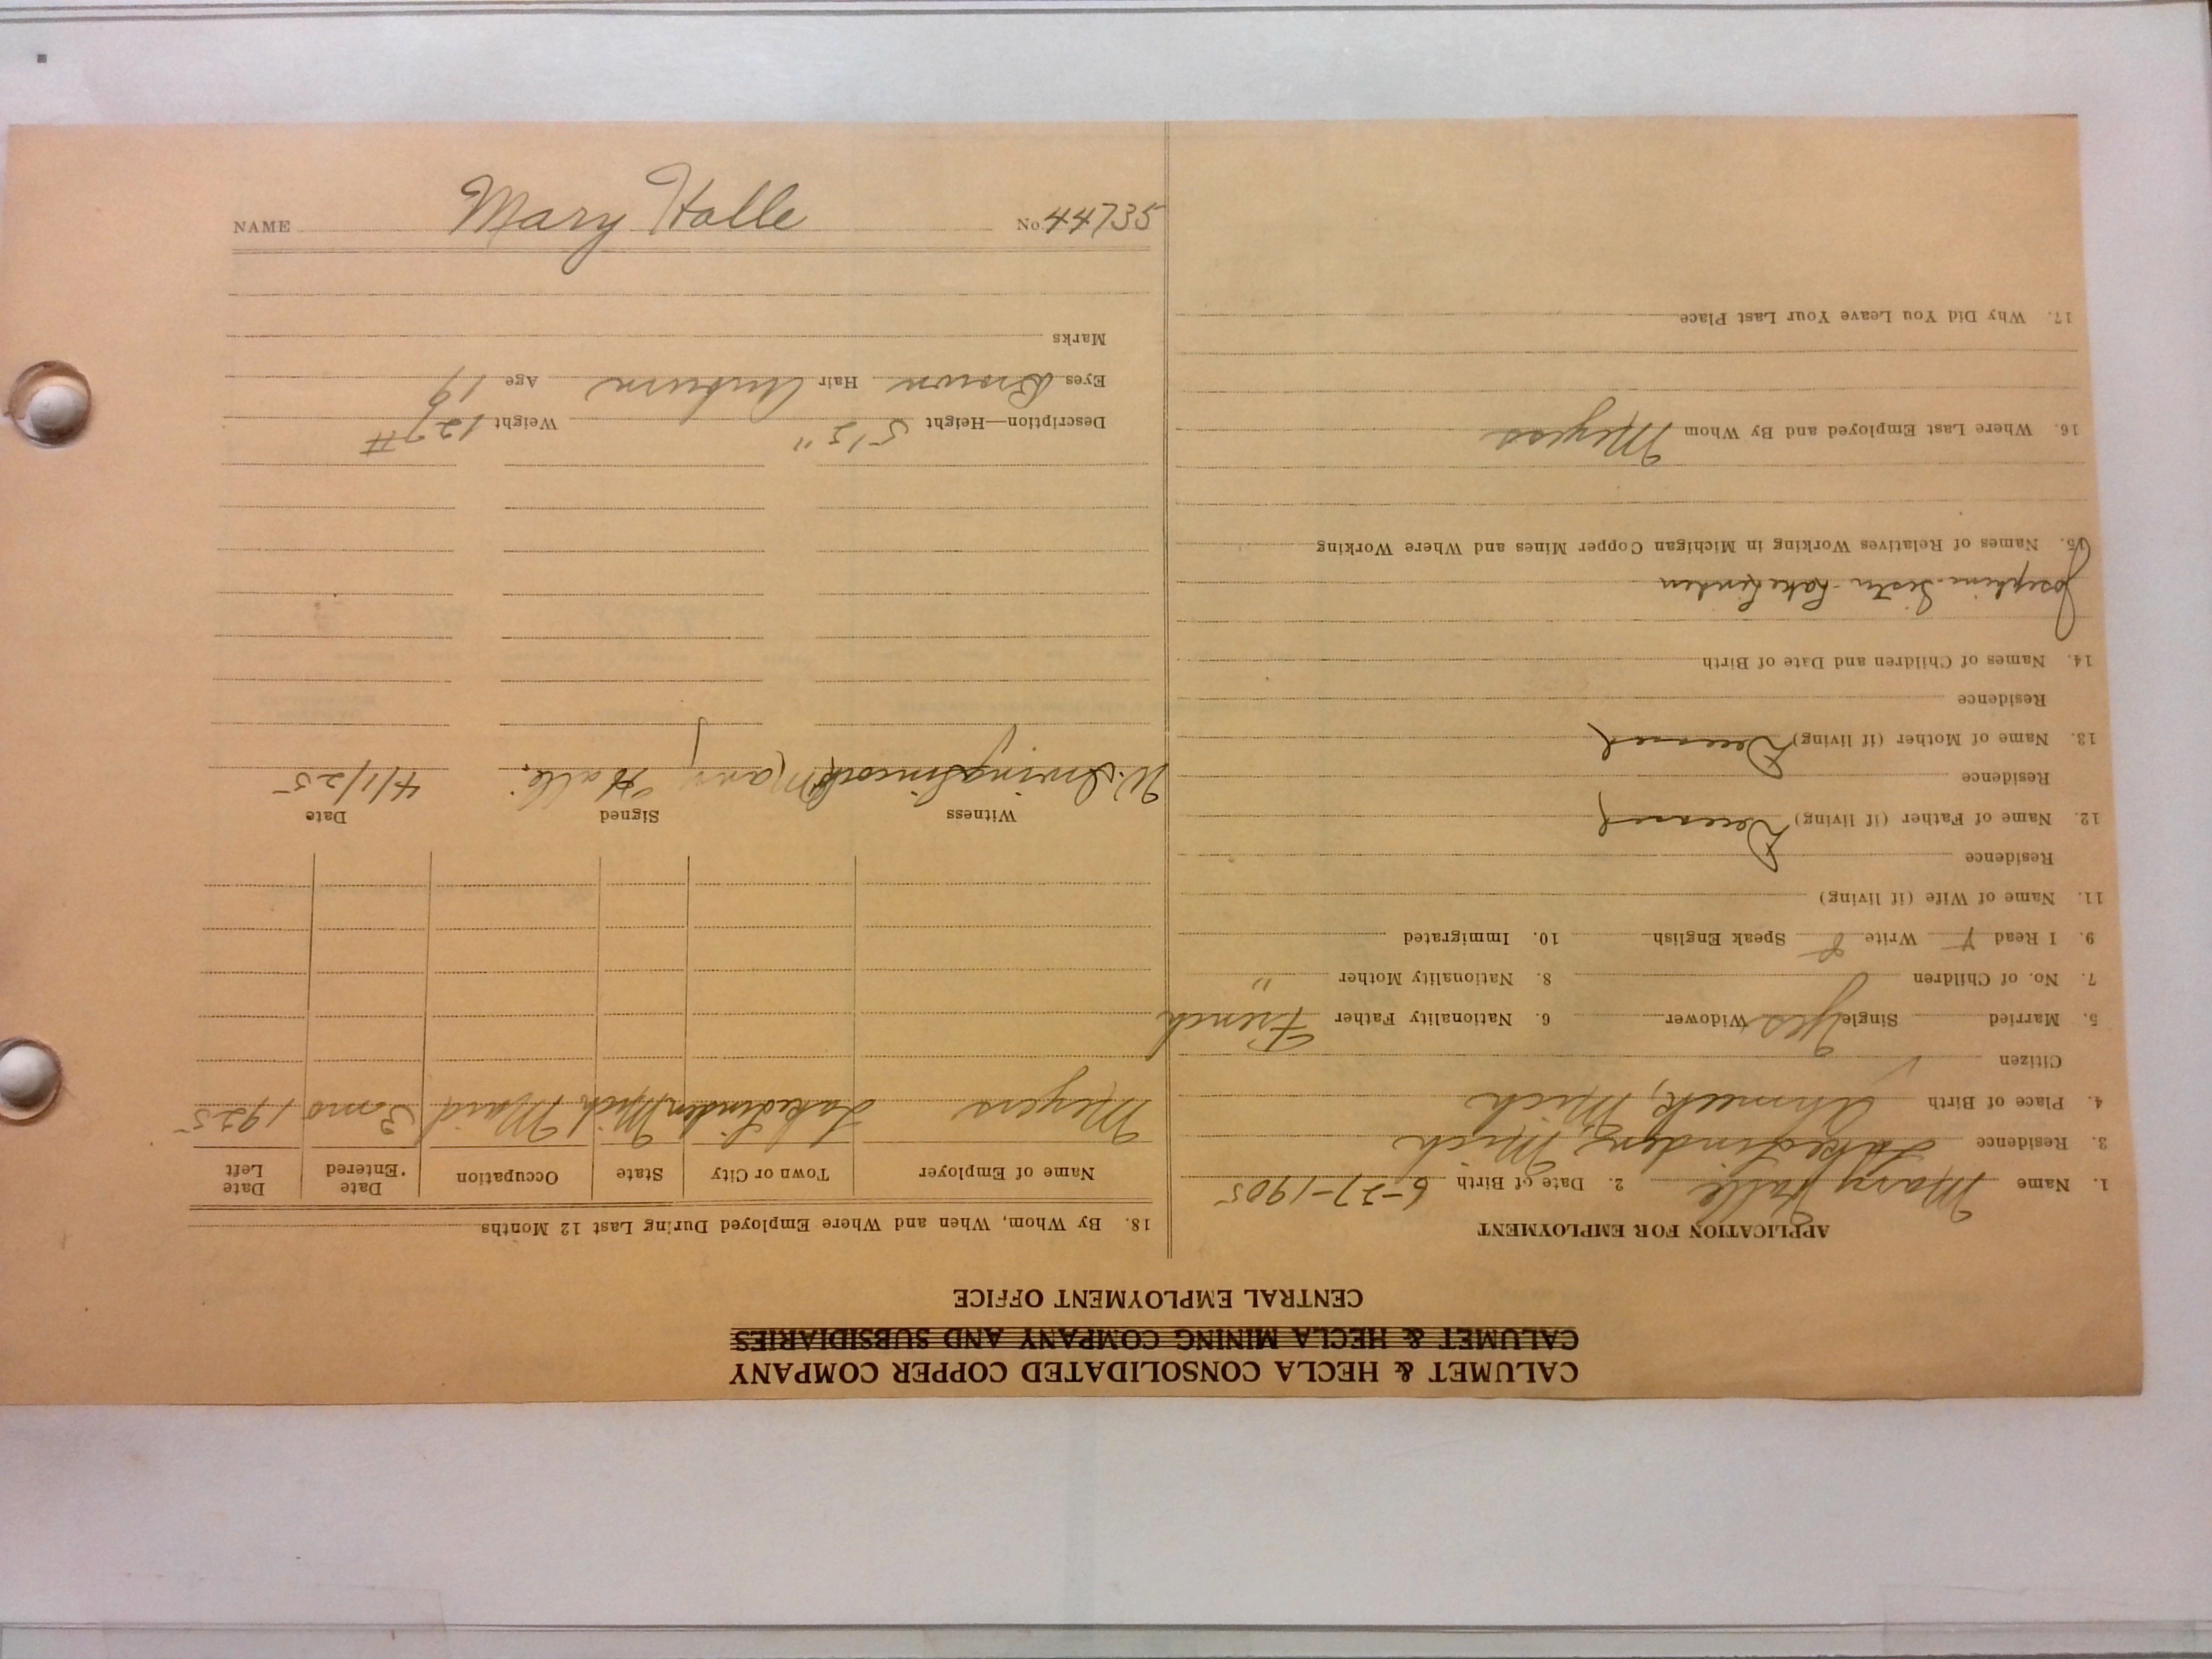 CALUMET & HECLA CONSOLIDATED COPPER COMPANY
CALUMET & HECLA MINING COMPANY AND SUBSIDIARIES
CENTRAL EMPLOYMENT OFFICE
APPLICATION FOR EMPLOYMENT
1. Name Mary Halle 2. Date of Birth 6-27-1905
3. Residence Lake Linden, Mich
4. Place of Birth Ahmeek, Mich
Citizen
5. Married Single Yes Widower 6. Nationality Father French
7. No. of Children 8. Nationality Mother "
9. I Read Y Write Y Speak English 10. Immigrated
11. Name of Wife (if living)
Residence
12. Name of Father (if living) Deceased
Residence
13. Name of Mother (if living) Deceased
Residence
14. Names of Children and Date of Birth
Josephine - Sister - Lake Linden
15. Names of Relatives Working in Michigan Copper Mines and Where Working
16. Where Last Employed and By Whom Meyers
17. Why Did You Leave Your Last Place
18. By Whom, When and Where Employed During Last 12 Months
Name of Employer Town or City State Occupation Date Entered Date Left
Meyers Lake Linden Mich Maid 3 mo 1925
Witness Signed Date
W. Irving Mary Halle 4/1/25
Description—Height 5'2" Weight 127#
Eyes Brown Hair Auburn Age 19
Marks
NAME Mary Halle No. 44735